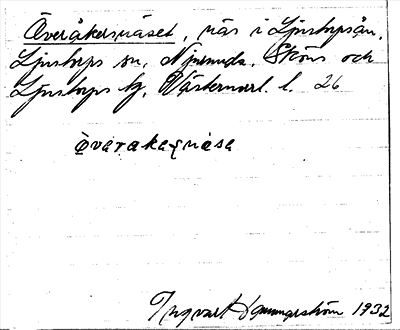 Överåkersnäset, näs i Ljustorpsån,
Ljustorps sn, Njurunda, Sköns och
Ljustorps tg, Västernorrl. l. 26
överakeṣnesa
Ingvar Hammarström 1932